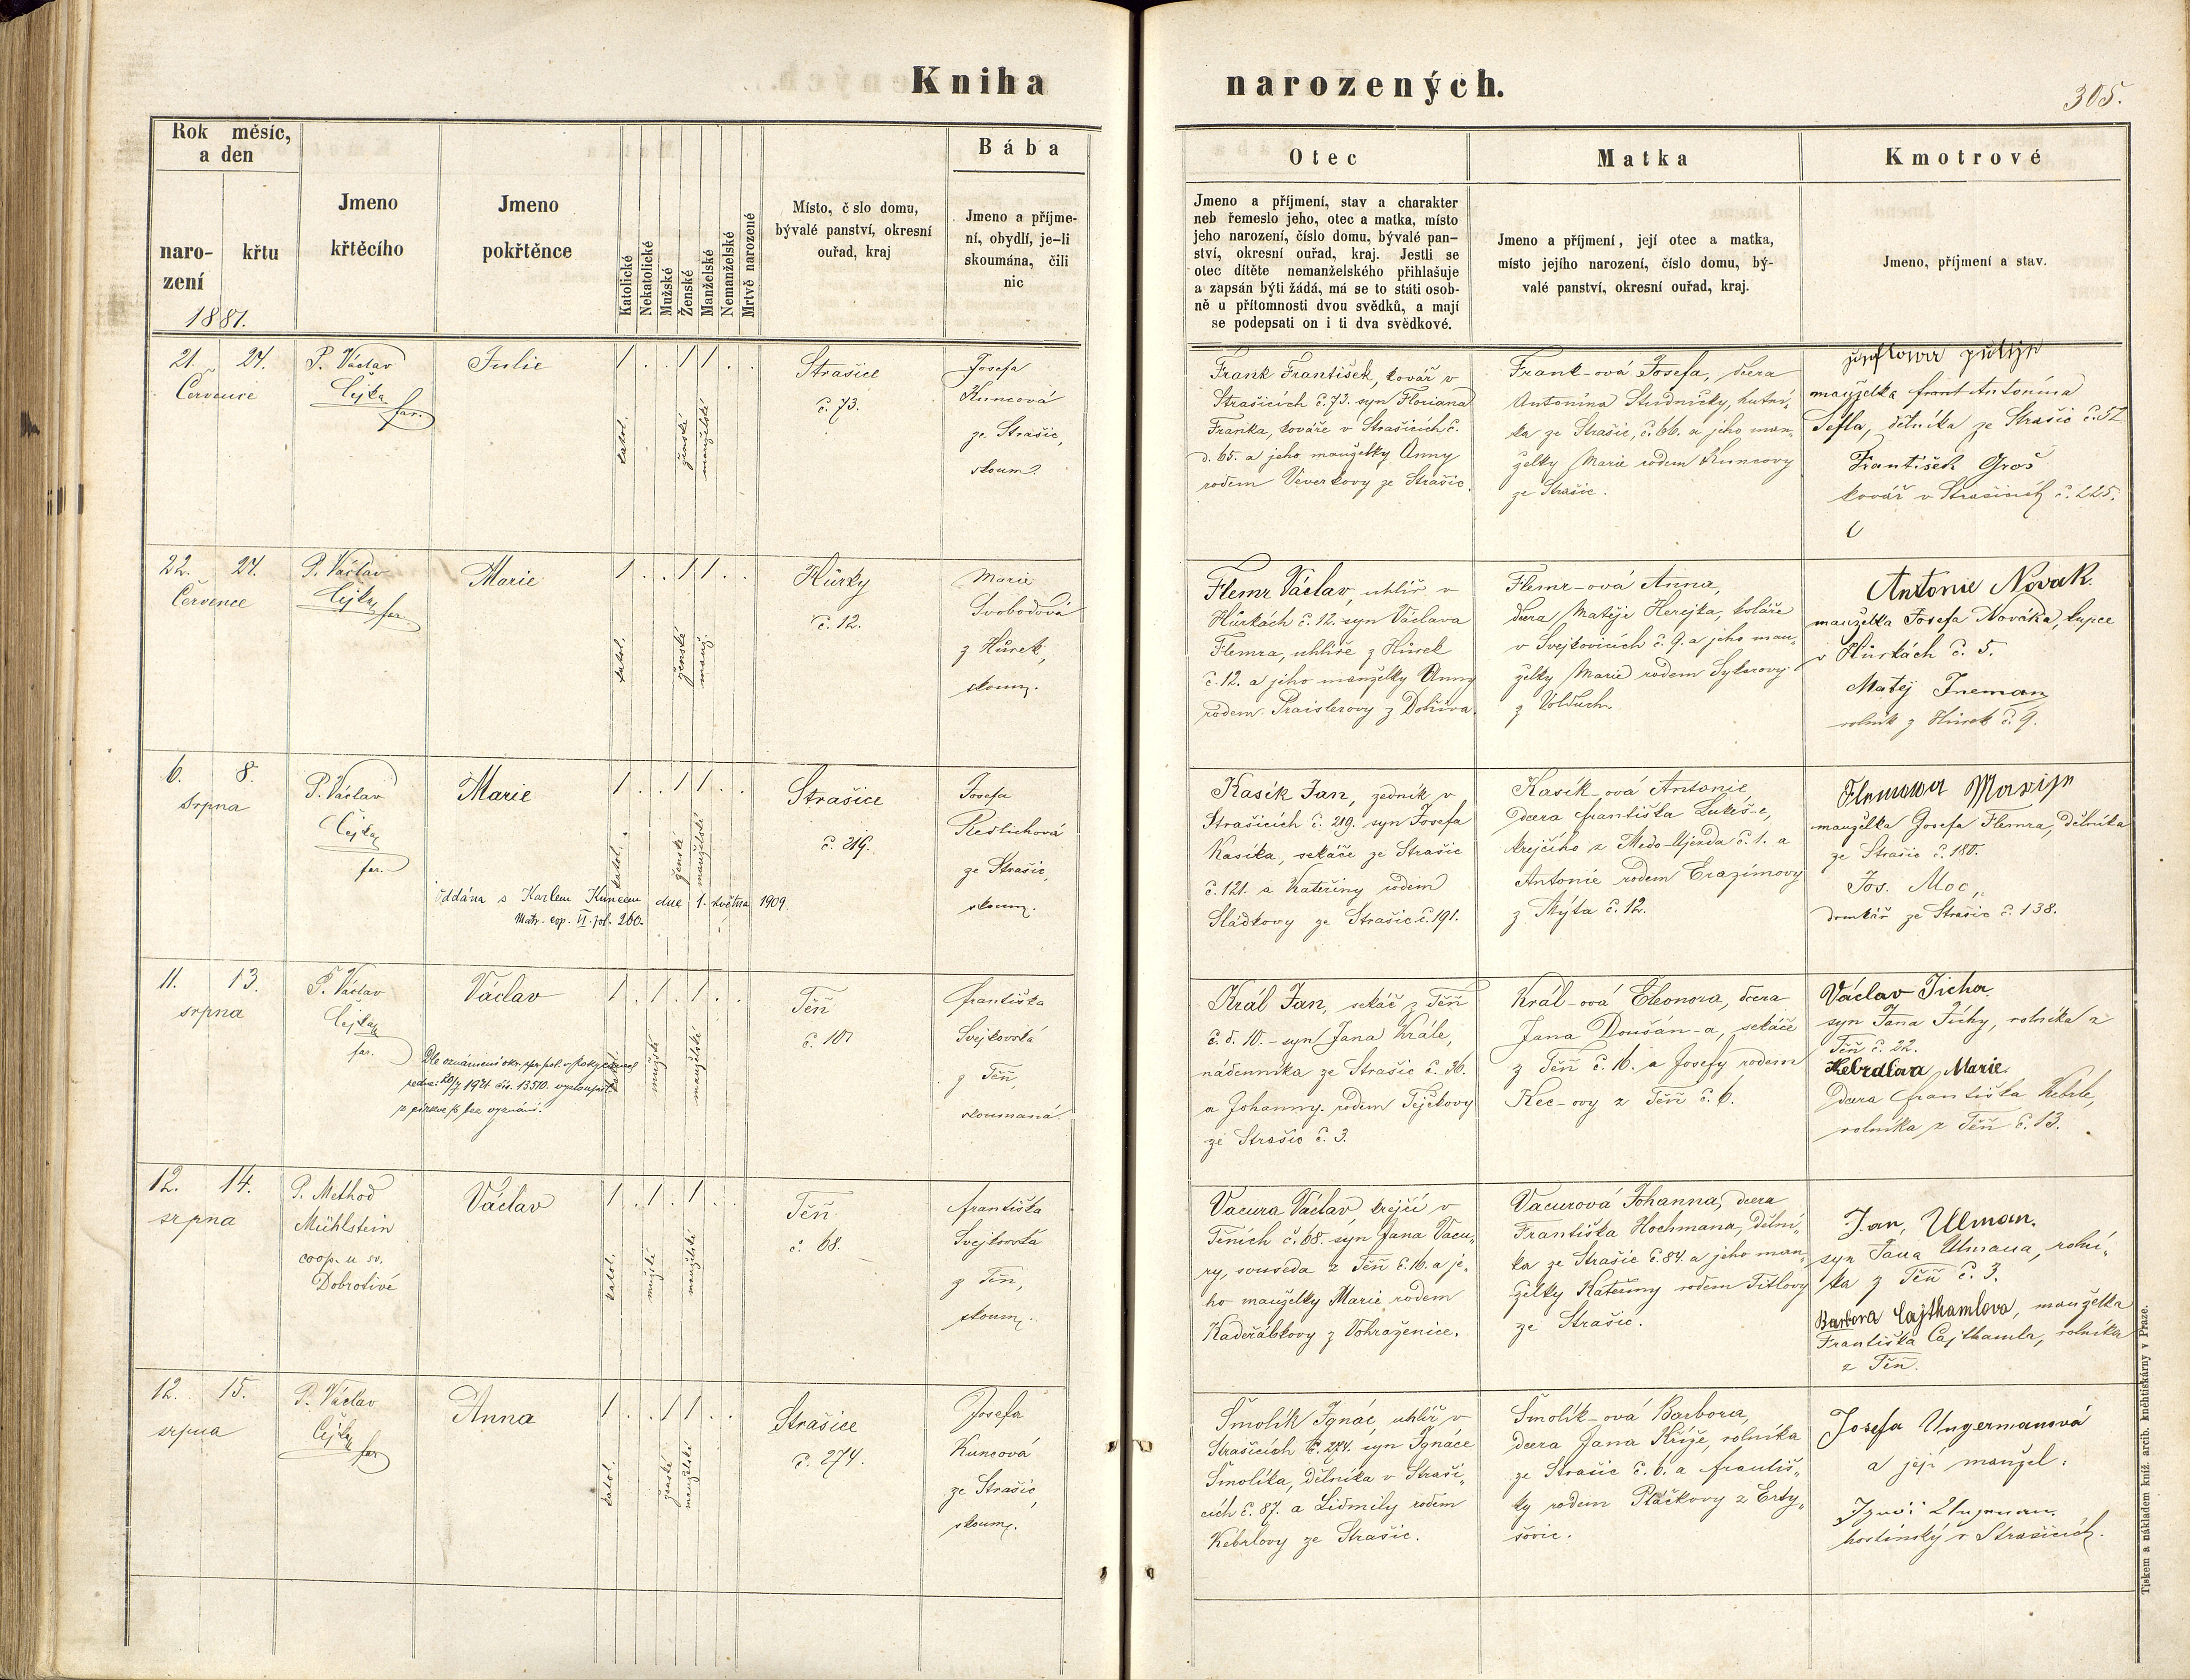 Kniha narozených.
305.
Rok měsíc,
a den
naro-
zení
křtu
1881.
Jmeno
křtěcího
Jmeno
pokřtěnce
Katolické
Nekatolické
Mužské
Ženské
Manželské
Nemanželské
Mrtvě narozené
Místo, č slo domu,
bývalé panství, okresní
ouřad, kraj
Bába
Jmeno a příjme-
ní, obydlí, je-li
skoumána, čili
nic
Otec
Jmeno a příjmení, stav a charakter
neb řemeslo jeho, otec a matka, místo
jeho narození, číslo domu, bývalé pan-
ství, okresní ouřad, kraj. Jestli se
otec dítěte nemanželského přihlašuje
a zapsán býti žádá, má se to státi osob-
ně u přítomnosti dvou svědků, a mají
se podepsati on i ti dva svědkové.
Matka
Jmeno a příjmení, její otec a matka,
místo jejího narození, číslo domu, bý-
valé panství, okresní ouřad, kraj.
Kmotrové
Jmeno, příjmení a stav.
21. 24.
Července
P. Václav
Čejka
far.
Julie
1 . . 1 1 . .
katol.
ženské
manželské
Strašice
č. 73.
Josefa
Kuncová
ze Strašic,
skoum.
Frank František, kovář v
Strašicích č. 73. syn Floriana
Franka, kováře v Strašicích č.
d. 65. a jeho manželky Anny
rodem Veverkovy ze Strašic.
Frank-ová Josefa, dcera
Antonína Studničky, hutní-
ka ze Strašic, č. 66. a jeho man-
želky Marie rodem Kuncovy
ze Strašic.
manželka Antonína
Šefla, dělníka ze Strašic č. 52
František Groš
kovář v Strašicích č. 225.
22. 24.
Července
P. Václav
Čejka
far.
Marie
1 . . 1 1 . .
katol.
ženské
manž.
Hůrky
č. 12.
Marie
Svobodová
z Hůrek,
skoum.
Flemr Václav, uhlíř v
Hůrkách č. 12. syn Václava
Flemra, uhlíře z Hůrek
č. 12. a jeho manželky Anny
rodem Praislerovy z Dobřiva.
Flemr-ová Anna,
dcera Matěje Herejka, koláře
v Svejkovicích č. 9. a jeho man-
želky Marie rodem Sykorovy
z Volduch.
Antonie Novak.
manželka Josefa Nováka, kupce
v Hůrkách č. 5.
Matěj Ineman
rolník z Hůrek č. 9.
6. 8.
Srpna
P. Václav
Čejka
far.
Marie
1 . . 1 1 . .
katol.
ženské
manželské
Oddána s Karlem Kuncem dne 1. května 1909.
Matr. cop. VI. fol. 260.
Strašice
č. 219.
Josefa
ze Strašic,
skoum.
Kasík Jan, zedník v
Strašicích č. 219. syn Josefa
Kasíka, sekáče ze Strašic
č. 121. a Kateřiny rodem
Sládkovy ze Strašic č. 191.
Kasík-ová Antonie,
dcera Františka Lukeš-e,
krejčího z Medo-Ujezda č. 1. a
Antonie rodem Erazímovy
z Mýta č. 12.
Flemrowa Marije
manželka Josefa Flemra, dělníka
ze Strašic č. 180.
Jos. Moc,
domkář ze Strašic č. 138.
11. 13.
srpna
P. Václav
Čejka
far.
Václav
1 . 1 . 1 . .
mužské
manželské
Dle oznámení okr. spr. pol. v Rokycanech
ze dne 20/7 1921 čís. 13510. vystoupil
z církve ř. bez vyznání.
Těň
č. 10
Františka
Svejkovská
z Těň,
skoumaná.
Král Jan, sekáč z Těň
č. d. 10. - syn Jana Krále,
nádenníka ze Strašic č. 36.
a Johanny rodem Tejčkovy
ze Strašic č. 3.
Král-ová Eleonora, dcera
Jana Doušán-a, sekáče
z Těň č. 16. a Josefy rodem
Kec-ovy z Těň č. 6.
Václav Ticha
syn Jana Tichy, rolníka z
Těň č. 22.
Kebrdlova Marie
Dcera Františka Kebrle,
rolníka z Těň č. 13.
12. 14.
srpna
P. Method
Mühlstein
coop. u sv.
Dobrotivé
Václav
1 . 1 . 1 . .
katol.
mužské
manželské
Těň
č. 68.
Františka
Svejkovská
z Těň,
skoum.
Vacura Václav, krejčí v
Těních č. 68. syn Jana Vacu-
ry, souseda z Těň č. 16. a je-
ho manželky Marie rodem
Kadeřábkovy z Vohraženice.
Vacurová Johanna, dcera
Františka Hochmana, dělní-
ka ze Strašic č. 84. a jeho man-
želky Kateřiny rodem Titlovy
ze Strašic.
Jan, Ulman.
syn Jana Ulmana, rolní-
ka z Těň č. 3.
Barbora Cajthamlova, manželka
Františka Cajthamla, rolníka
z Těň.
12. 15.
srpna
P. Václav
Čejka
far.
Anna
1 . . 1 1 . .
katol.
ženské
manželské
Strašice
č. 274.
Josefa
Kuncová
ze Strašic,
skoum.
Šmolík Ignác, uhlíř v
Strašicích č. 274. syn Ignáce
Šmolíka, dělníka v Straši-
cích č. 87. a Lidmily rodem
Kebrlovy ze Strašic.
Šmolík-ová Barbora,
dcera Jana Kříže, rolníka
ze Strašic č. 6. a Františ-
ky rodem Ptáčkovy z Erty-
šovic.
Josefa Ungermanová
a její manžel:
hostinský v Strašicích.
Tiskem a nákladem kníž. arcib. kněhtiskárny v Praze.